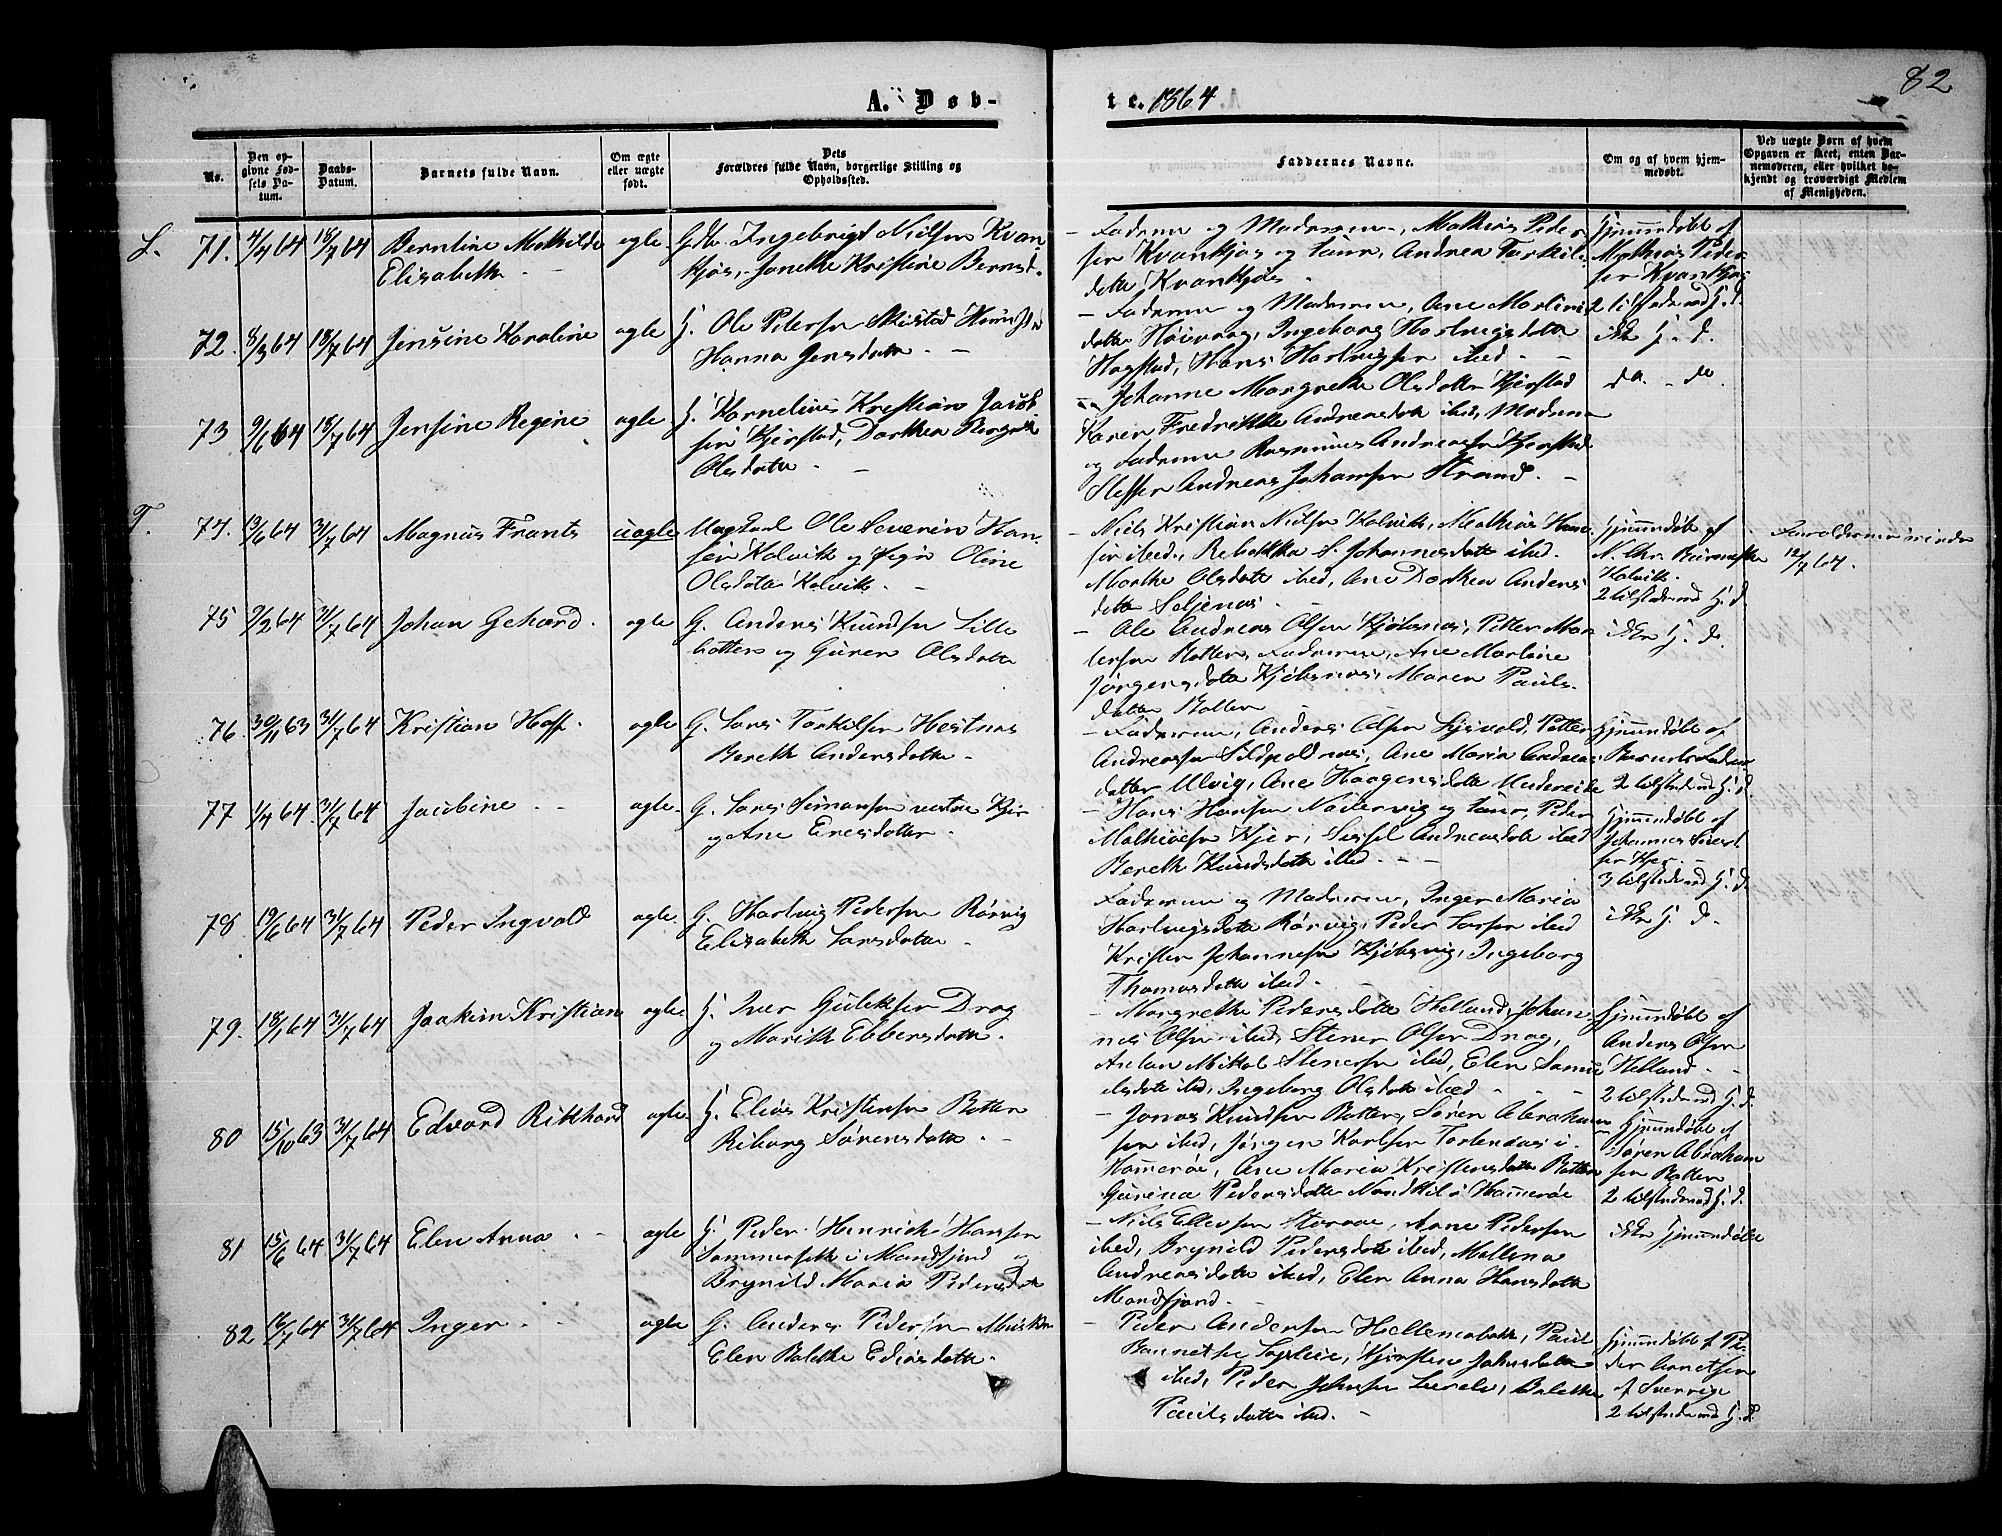 82
A. Døb-
te. 1864
No.
Den op-
givne Fød-
sels Da-
tum.
Daabs-
Datum.
Barnets fulde Navn.
Om ægte
eller uægte
født.
Dets
Forældres fulde Navn, borgerlige Stilling og
Opholdssted.
Faddernes Navne.
Om og af hvem hjem-
medøbt.
Ved uægte Børn af hvem
Opgaven er skeet, enten Bar-
nemoderen, eller hvilket be-
kjendt og troværdigt Medlem
af Menigheden.
L.
71. 4/4 64 18/7 64 Berntine Mathilde
Elisabeth
ægte
Gdbr. Ingebrigt Nielsen Kvan-
kjos, Janethe Kristine Berntsd.
- Faderen og Moderen, Mathias Peder-
sen Kvankjos og
dotter Kvankjos
Hjemmedøbt af
Mathias Peder-
sen Kvankjos
2 tilstede ved H. d.
72. 8/3 64 18/7 64 Jensine Karoline ægte
G. Ole Pedersen
Hanna Jensdatter. -
- Faderen og Moderen, Ane
dotter Ingeborg Hartvigsdatter
Hagstad, Hans Hartvigsen ibid. -
ikke H. d.
73 9/6 64 18/7 64 Jensine Regine ægte
G. Kornelius Kristian Jacob-
sen Kjerstad, Dorthea
Olsdatter. -
Johanne Margrethe Olsdatter Kjerstad
Karen Fredrikke Andreasdotter ibid, Moderen
og Faderen Rasmus Andreassen Kjerstad
Steffen Andreas Johansen Strand. -
do. - do.
T.
74. 13/6 64 31/7 64 Magnus Frants uægte
Ungkarl Ole Severin Han-
sen Kolvik og Pige Oline
Olsdotter Kolvik. -
- Niels Kristian Nielsen Kolvik, Mathias Han-
sen ibid, Rebekka S. Johannesdotter ibid.
Marthe Olsdatter ibid, Ane Dorthea Anders-
datter Seljenæs. -
Hjemmedøbt af
N. Chr.
Kolvik.
2 tilstede ved H. d.
12/7 64.
75 9/2 64 31/7 64 Johan Gehard. ægte
G. Anders Knudsen Lille
batten og Guren Olsdatter
- Ole Andreas Olsen Kjøbsnæs, Petter Mor-
tensen Botten, Faderen, Ane Martine
Jørgensdatter Kjøbsnæs, Maren Pauls-
datter Botten
ikke H. d.
76. 30/11 63 31/7 64 Kristian Hoff. ægte
G. Lars Torkilsen Hestnæs
Bereth Andersdatter -
- Faderen, Anders Olsen Petter
Andreassen Sildpolnæs, Ane Maria Andreas-
datter Ulvig, Ane Haagensdatter
Hjemmedøbt af
Barnets Fader
2 tilstede ved H. d.
77 1/4 64. 31/7 64 Jacobine - - ægte.
G. Lars Simonsen vestre Kjer
og Ane Enesdatter.
- Hans Hansen Nodervig og Peder
Mathiasen Kjer, Sessel Andreasdatter ibid
Bereth Knudsdatter ibid. - -
Hjemmedøbt af
Johannes Sivert-
sen Kjer. -
3 tilstede ved H. d.
78. 19/6 64 31/7 64 Peder Ingvald ægte
G. Hartvig Pedersen Rørvig
Elisabeth Larsdatter -
Faderen og Moderen, Inger Maria
Hartvigsdatter Rørvig, Peder Larsen ibid
Krister Johannesen Kjøbsvig, Ingeborg
Thomasdatter ibid. -
ikke H. d.
79. 18/1 64 31/7 64 Joakim Kristian ægte
G. Iver Guleksen Drag
og Marith Ebbersdatter.
- Margrethe Pedersdatter Helland, Johan-
nes Olsen ibid, Stener Olsen Drag,
Anton Mikal Stenersen ibid, Elen
datter ibid, Ingeborg Olsdatter ibid -
Hjemmedøbt af
Anders Olsen
Helland - -
2 tilstede ved H. d.
80 15/10 63 31/7 64 Edvard Rikhard ægte
G. Elias Kristensen Botten
Riborg Sørensdatter. -
- Jonas Knudsen Botten, Søren Abraham-
sen ibid, Jørgen Karlsen i
Hammerøe, Ane Maria Kristensdatter Botten
Gurina Pedersdatter i Hammerøe
Hjemmedøbt af
Søren Abraham-
sen Botten
2 tilstede ved H. d.
81 15/6 64 31/7 64 Elen Anna - - ægte
G. Peder Hinrich Hansen
Sommersette i Mandfjord og
Brynild Maria Pedersdatter
- Niels Ellevsen Storaae, Arne Pedersen
ibid, Brynild Pedersdatter ibid, Mallena
Andreasdatter ibid, Elen Anna Hansdatter
Mandfjord. -
ikke Hjemmedøbt
82 16/7 64 31/7 64 Inger - - ægte
G. Anders Pedersen
Elen Balethe Ediasdatter.
- Peder Andersen Hellemobotn, Paul
Kjersten Johnsdatter
ibid, Peder Balethe
Paulsdatter ibid. -
Hjemmedøbt af Pe-
der
af Sverrige
2 tilstede ved H. d.